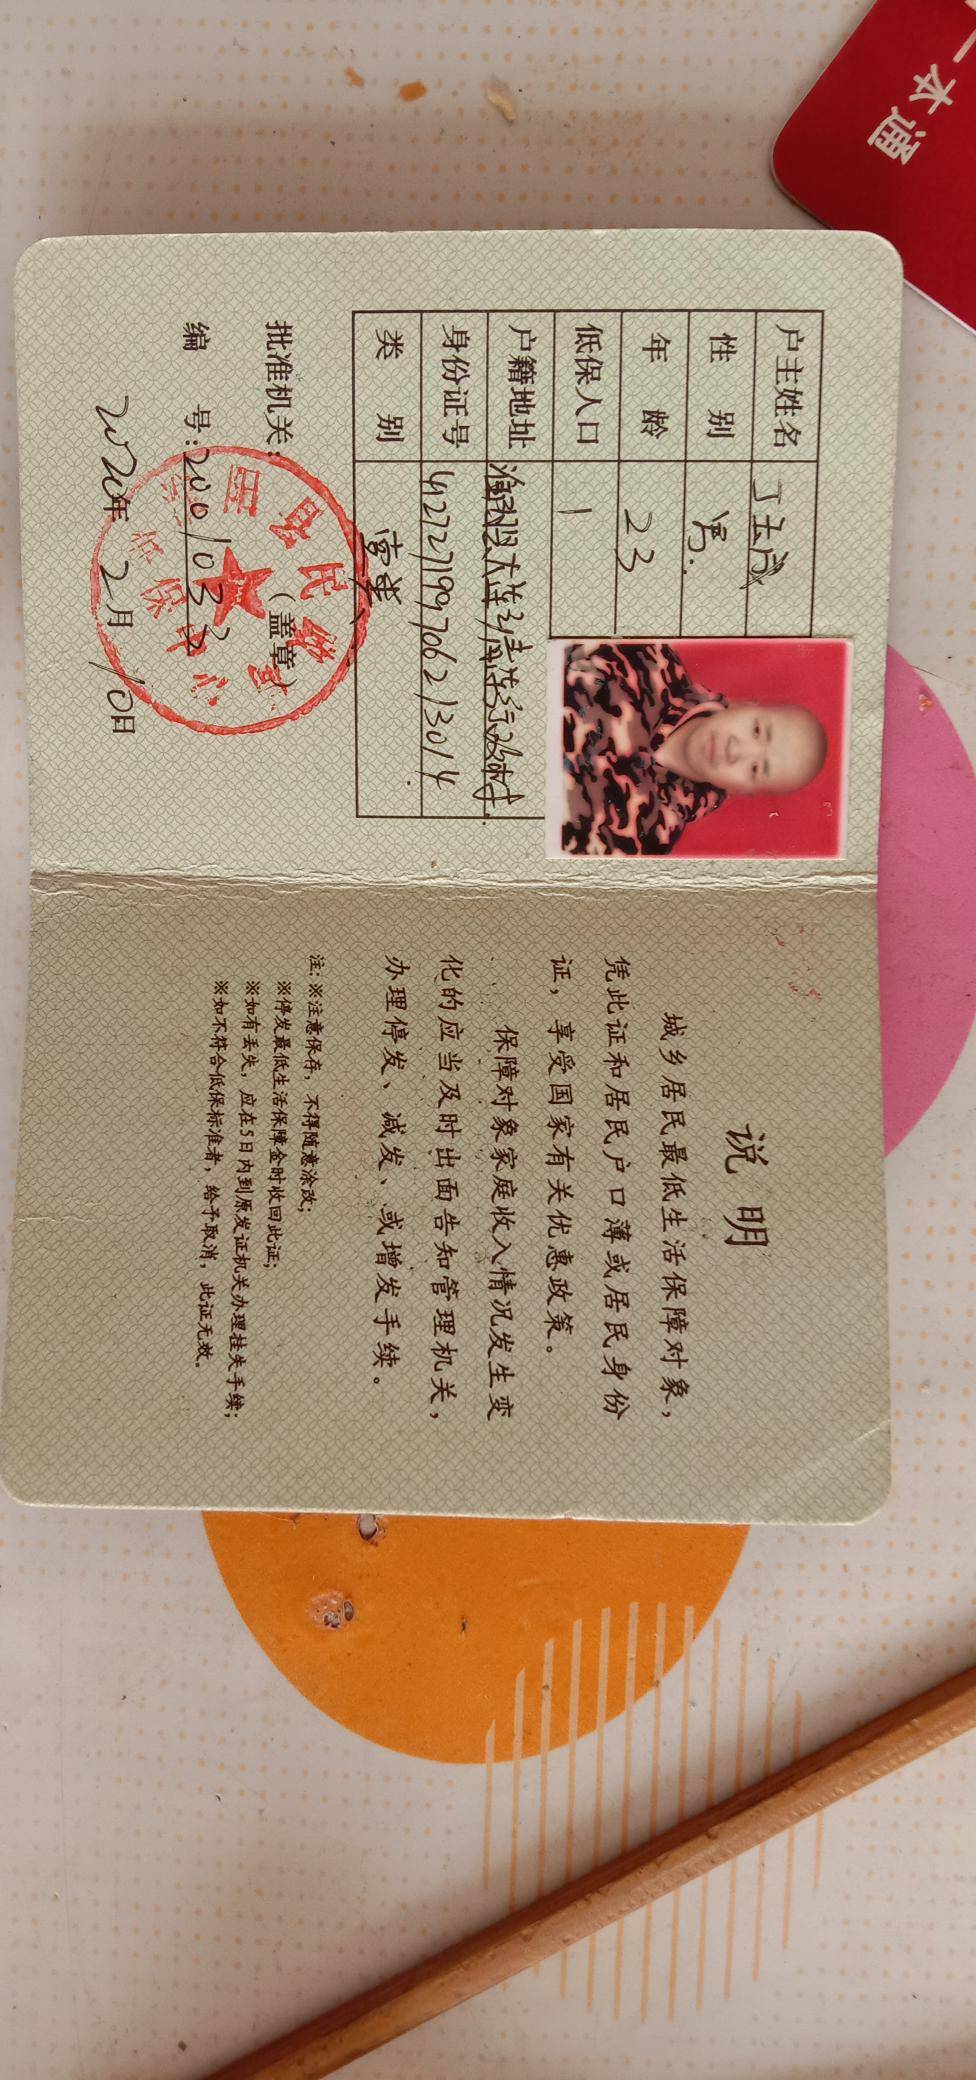 一本通
户主姓名 丁玉成
性 别 男.
年 龄 23
低保人口 1
户籍地址 大连
身份证号 412727199706213014
类 别
批准机关: (盖章)
编 号: 20010
2020年2月10日
说 明
城乡居民最低生活保障对象,
凭此证和居民户口薄或居民身份
证,享受国家有关优惠政策。
保障对象家庭收入情况发生变
化的应当及时出面告知管理机关,
办理停发、减发、或增发手续。
注:※注意保存,不得随意涂改;
※停发最低生活保障金时收回此证;
※如有丢失,应在5日内到原发证机关办理挂失手续;
※如不符合低保标准者,给予取消,此证无效。